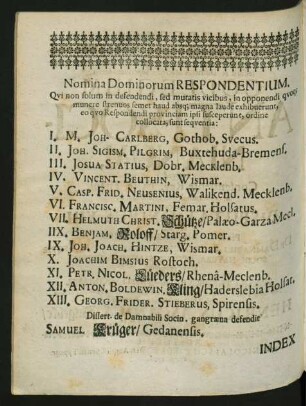 Nomina Dominorum RESPONDENTIUM.
Qvi non solum in defendendi, sed mutatis vicibus, in opponendi qvoq;
munere strenuos semet haud absq; magna laude exhibuerunt,
eo qvo Respondendi provinciam ipsi susceperunt, ordine
collocata, sunt seqventia:
I. M. JOH. CARLBERG, Gothob. Svecus.
II. JOH. SIGISM. PILGRIM, Buxtehuda-Bremens.
III. JOSUA STATIUS, Dobr. Mecklenb.
IV. VINCENT. BEUTHIN, Wismar.
V. CASP. FRID. NEUSENIUS, Walikend. Mecklenb.
VI. FRANCISC. MARTINI, Femar. Holsatus.
VII. HELMUTH CHRIST. Schütze/ Palæo-Garza Mecl.
IIX. BENJAM. Roloff/ Starg. Pomer.
IX. JOH. JOACH. HINTZE, Wismar.
X. JOACHIM BIMSIUS Rostoch.
XI. PETR. NICOL. Lüeders/ Rhenâ-Meclenb.
XII. ANTON. BOLDEWIN. Kling/ Haderslebia Holsat.
XIII. GEORG. FRIDER. STIEBERUS, Spirensis.
Dissert. de Damnabili Socin. gangræna defendit
SAMUEL Krüger/ Gedanensis.
INDEX